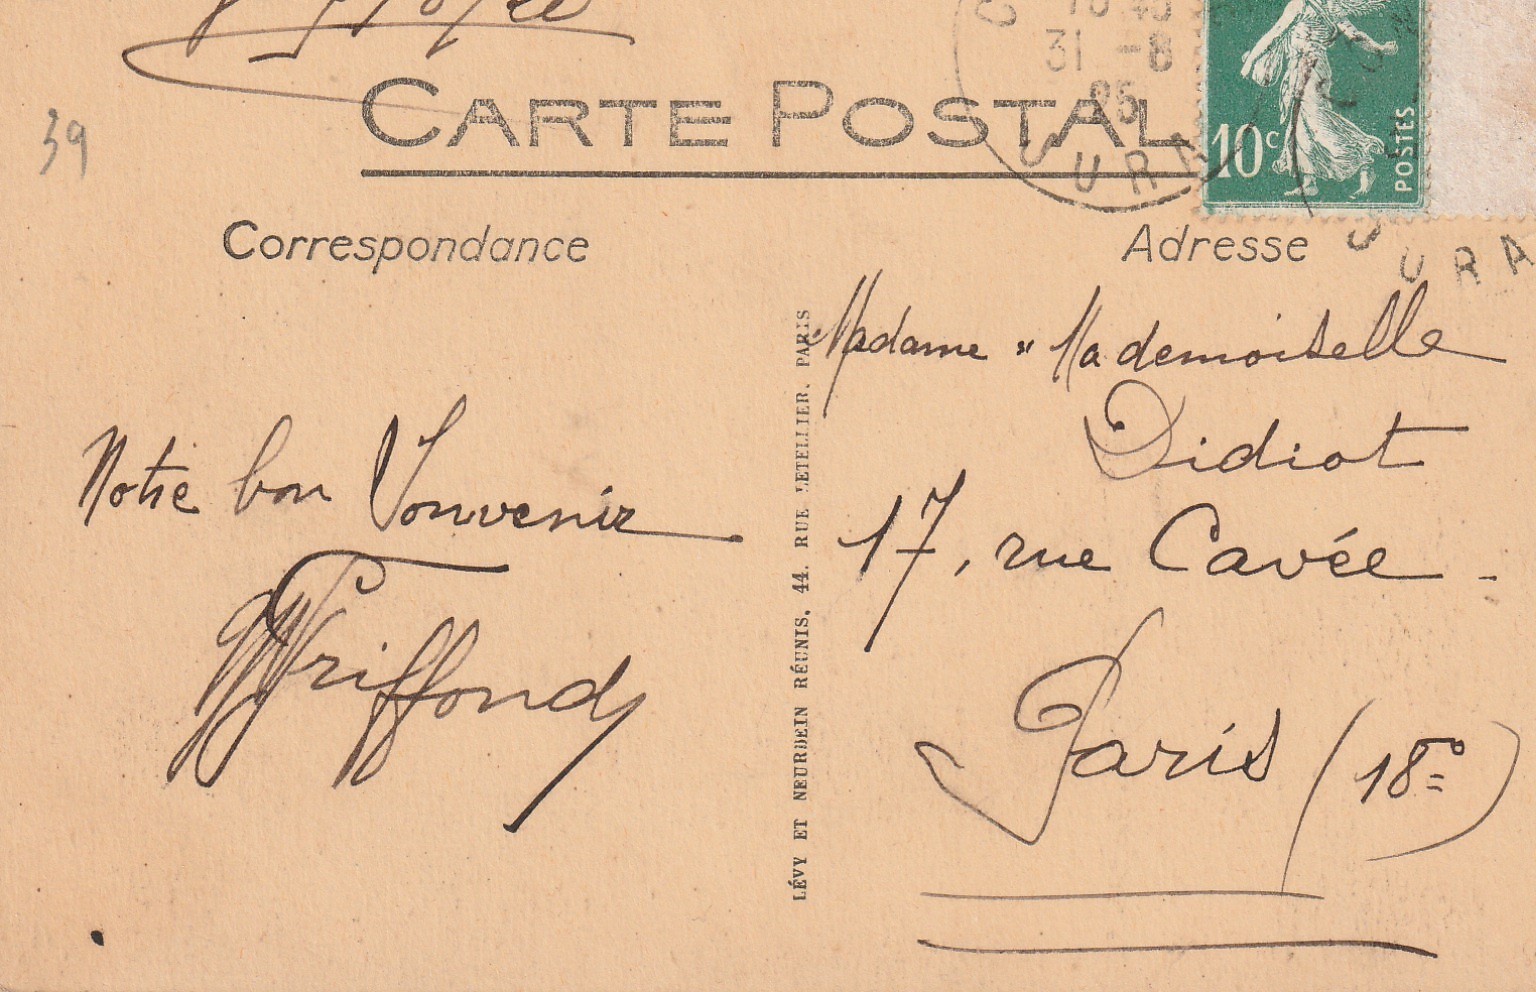 39
CARTE POSTAL
31 -8
25
JURA
10c
POSTES
JURA
Correspondance
Adresse
Notre bon Souvenir
Griffond
LÉVY ET NEURDEIN RÉUNIS, 44, RUE LETELLIER, PARIS
Madame " Mademoiselle
Didiot
17, rue Cavée -
Paris (18e)